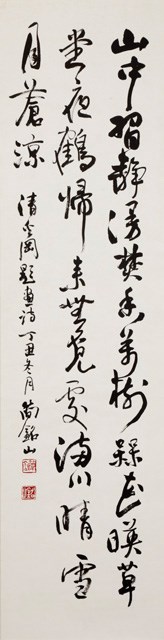 山中習靜漫焚香萬樹槑花暎草
堂夜鶴歸來無覓處滿川晴雪
月蒼涼 清金岡題畫詩 丁丑冬月 銘山